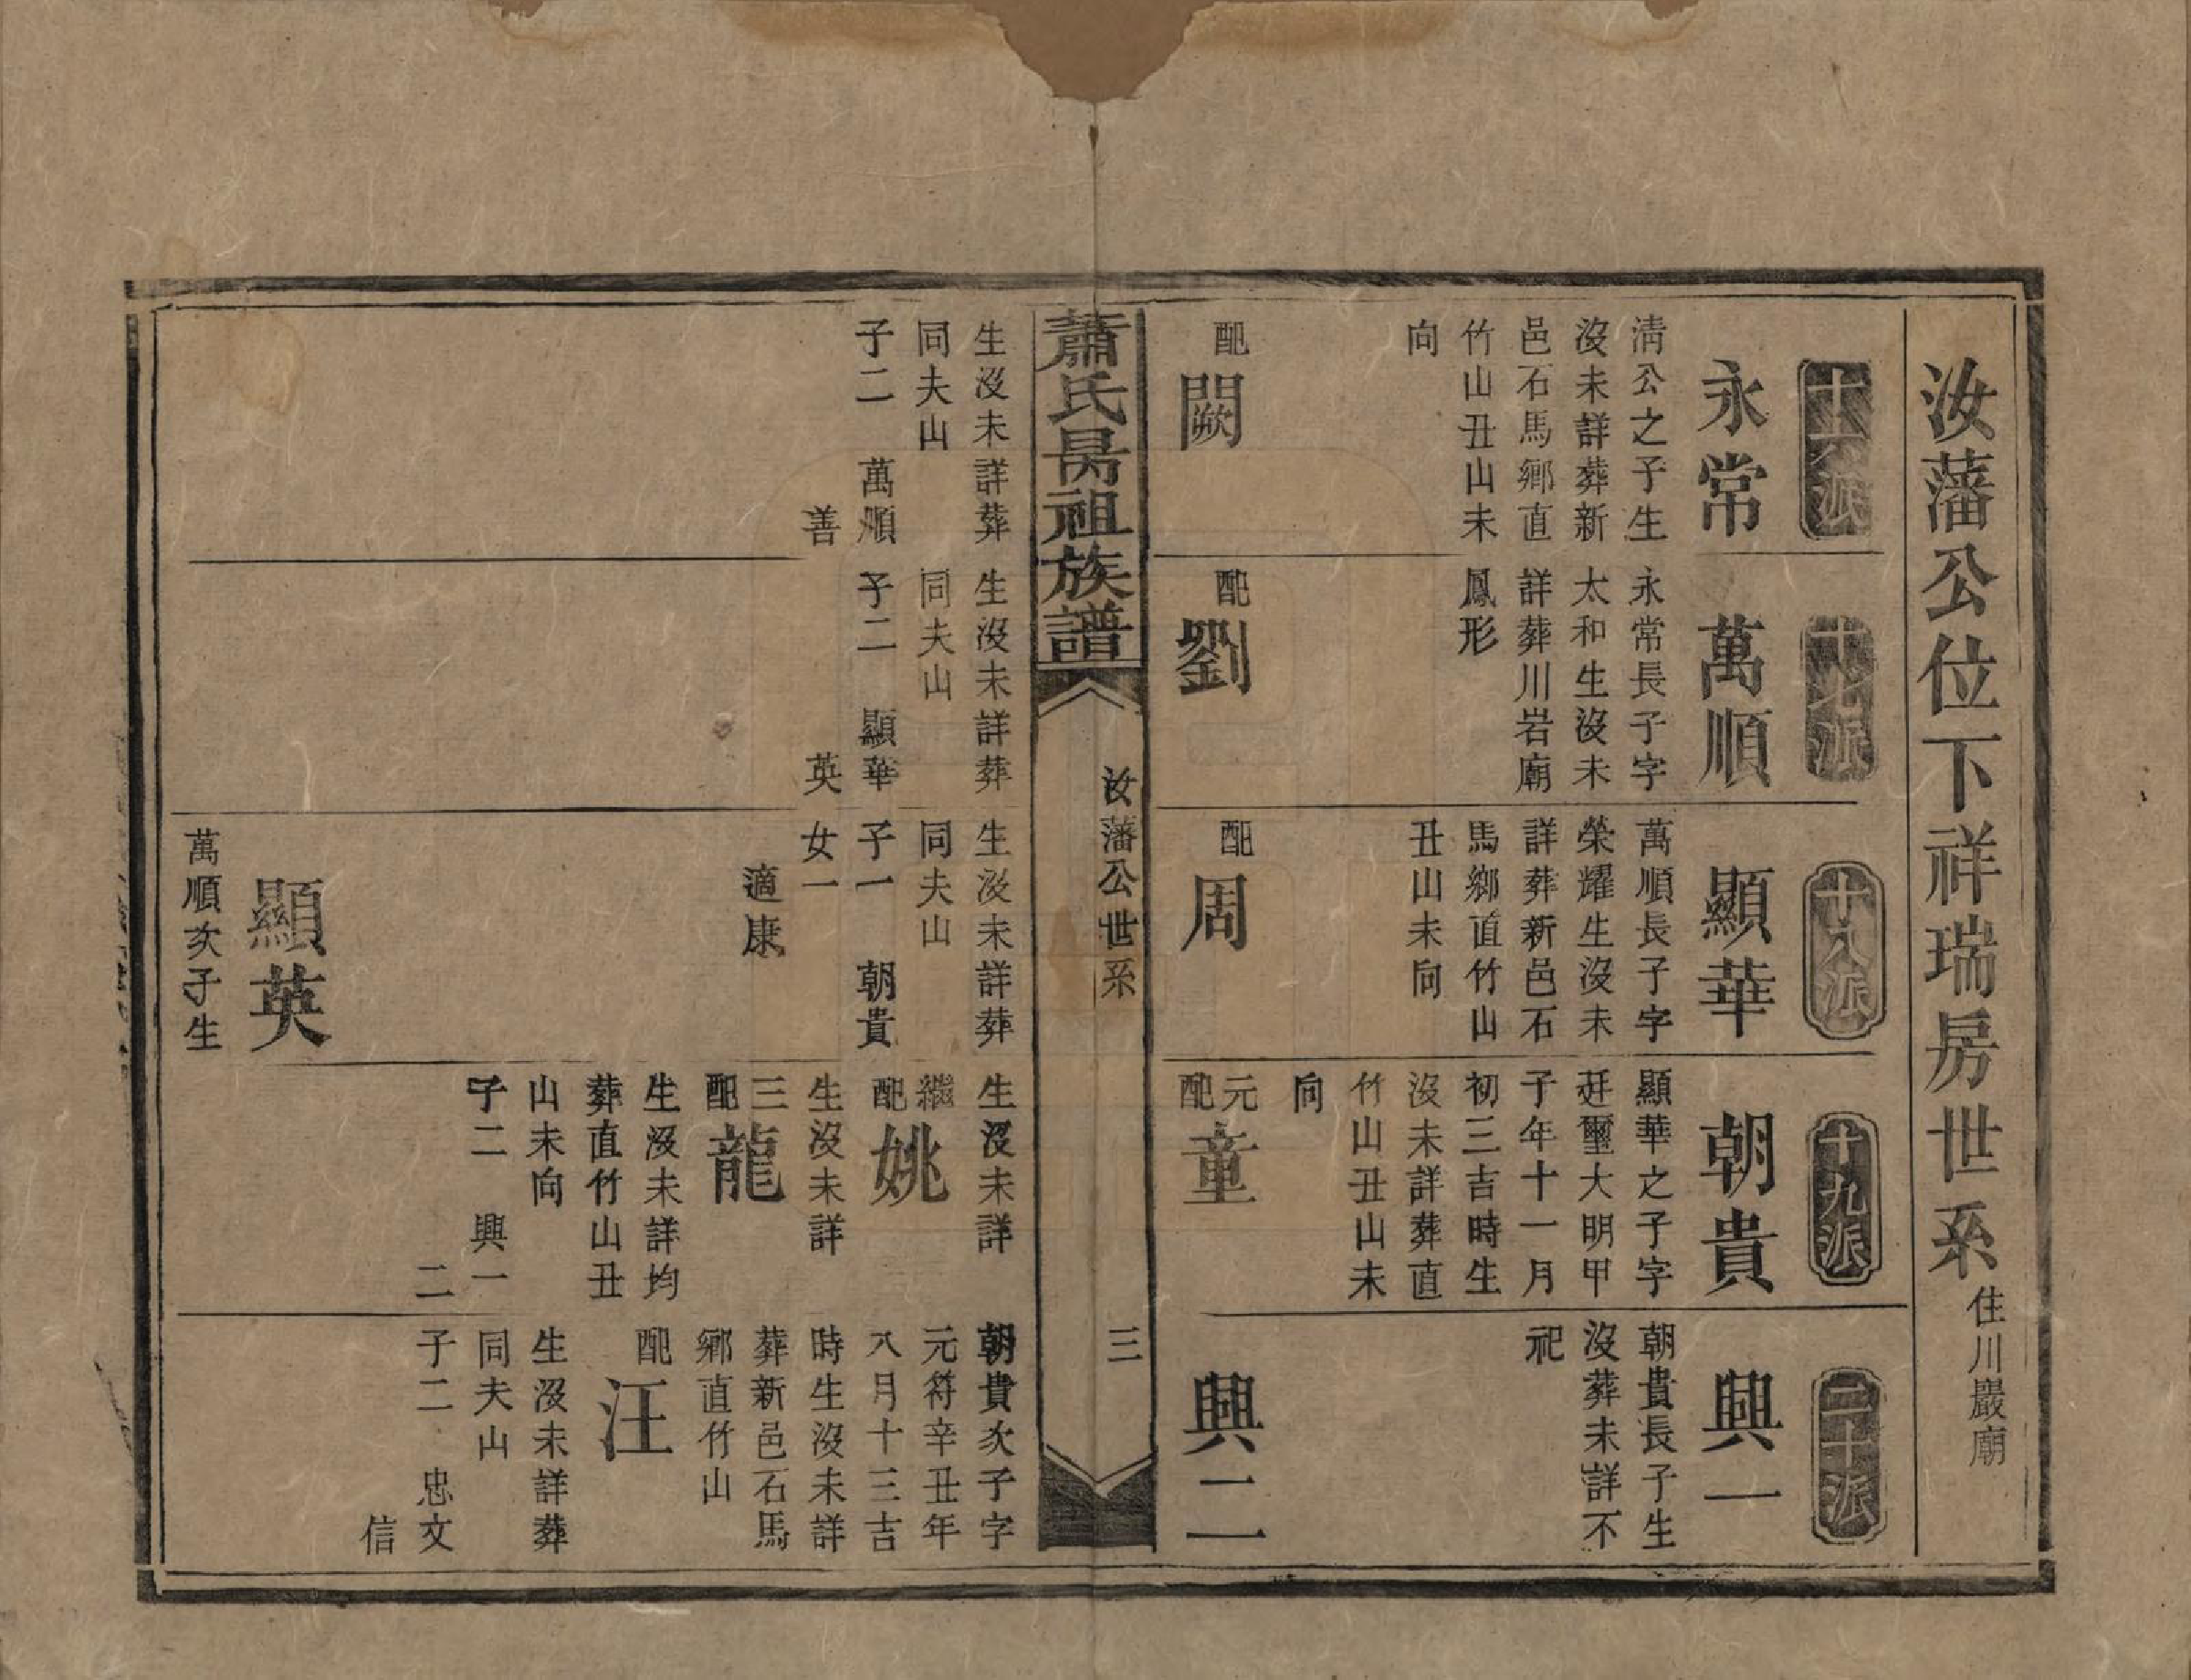 汝藩公位下祥瑞房世系 住川巖廟
十六派
永常
淸公之子生
沒未詳葬新
邑石馬鄉直
竹山丑山未
向
配
闕
生沒未詳葬
同夫山
子二 萬順
善
十七派
萬順
永常長子字
太和生沒未
詳葬川岩廟
鳳形
配
劉
生沒未詳葬
同夫山
子二 顯華
英
十八派
顯華
萬順長子字
榮耀生沒未
詳葬新邑石
馬鄉直竹山
丑山未向
配
周
生沒未詳葬
同夫山
子一 朝貴
女一
適康
顯英
萬順次子生
十九派
朝貴
顯華之子字
廷璽大明甲
子年十一月
初三吉時生
沒未詳葬直
竹山丑山未
向
元配
童
生沒未詳
繼配
姚
生沒未詳
三配
龍
生沒未詳均
葬直竹山丑
山未向
子二 興一
二
二十派
興一
朝貴長子生
沒葬未詳不
祀
興二
朝貴次子字
元符辛丑年
八月十三吉
時生沒未詳
葬新邑石馬
鄉直竹山
配
汪
生沒未詳葬
同夫山
子二 忠文
信
蕭氏昺祖族譜
汝藩公世系
三